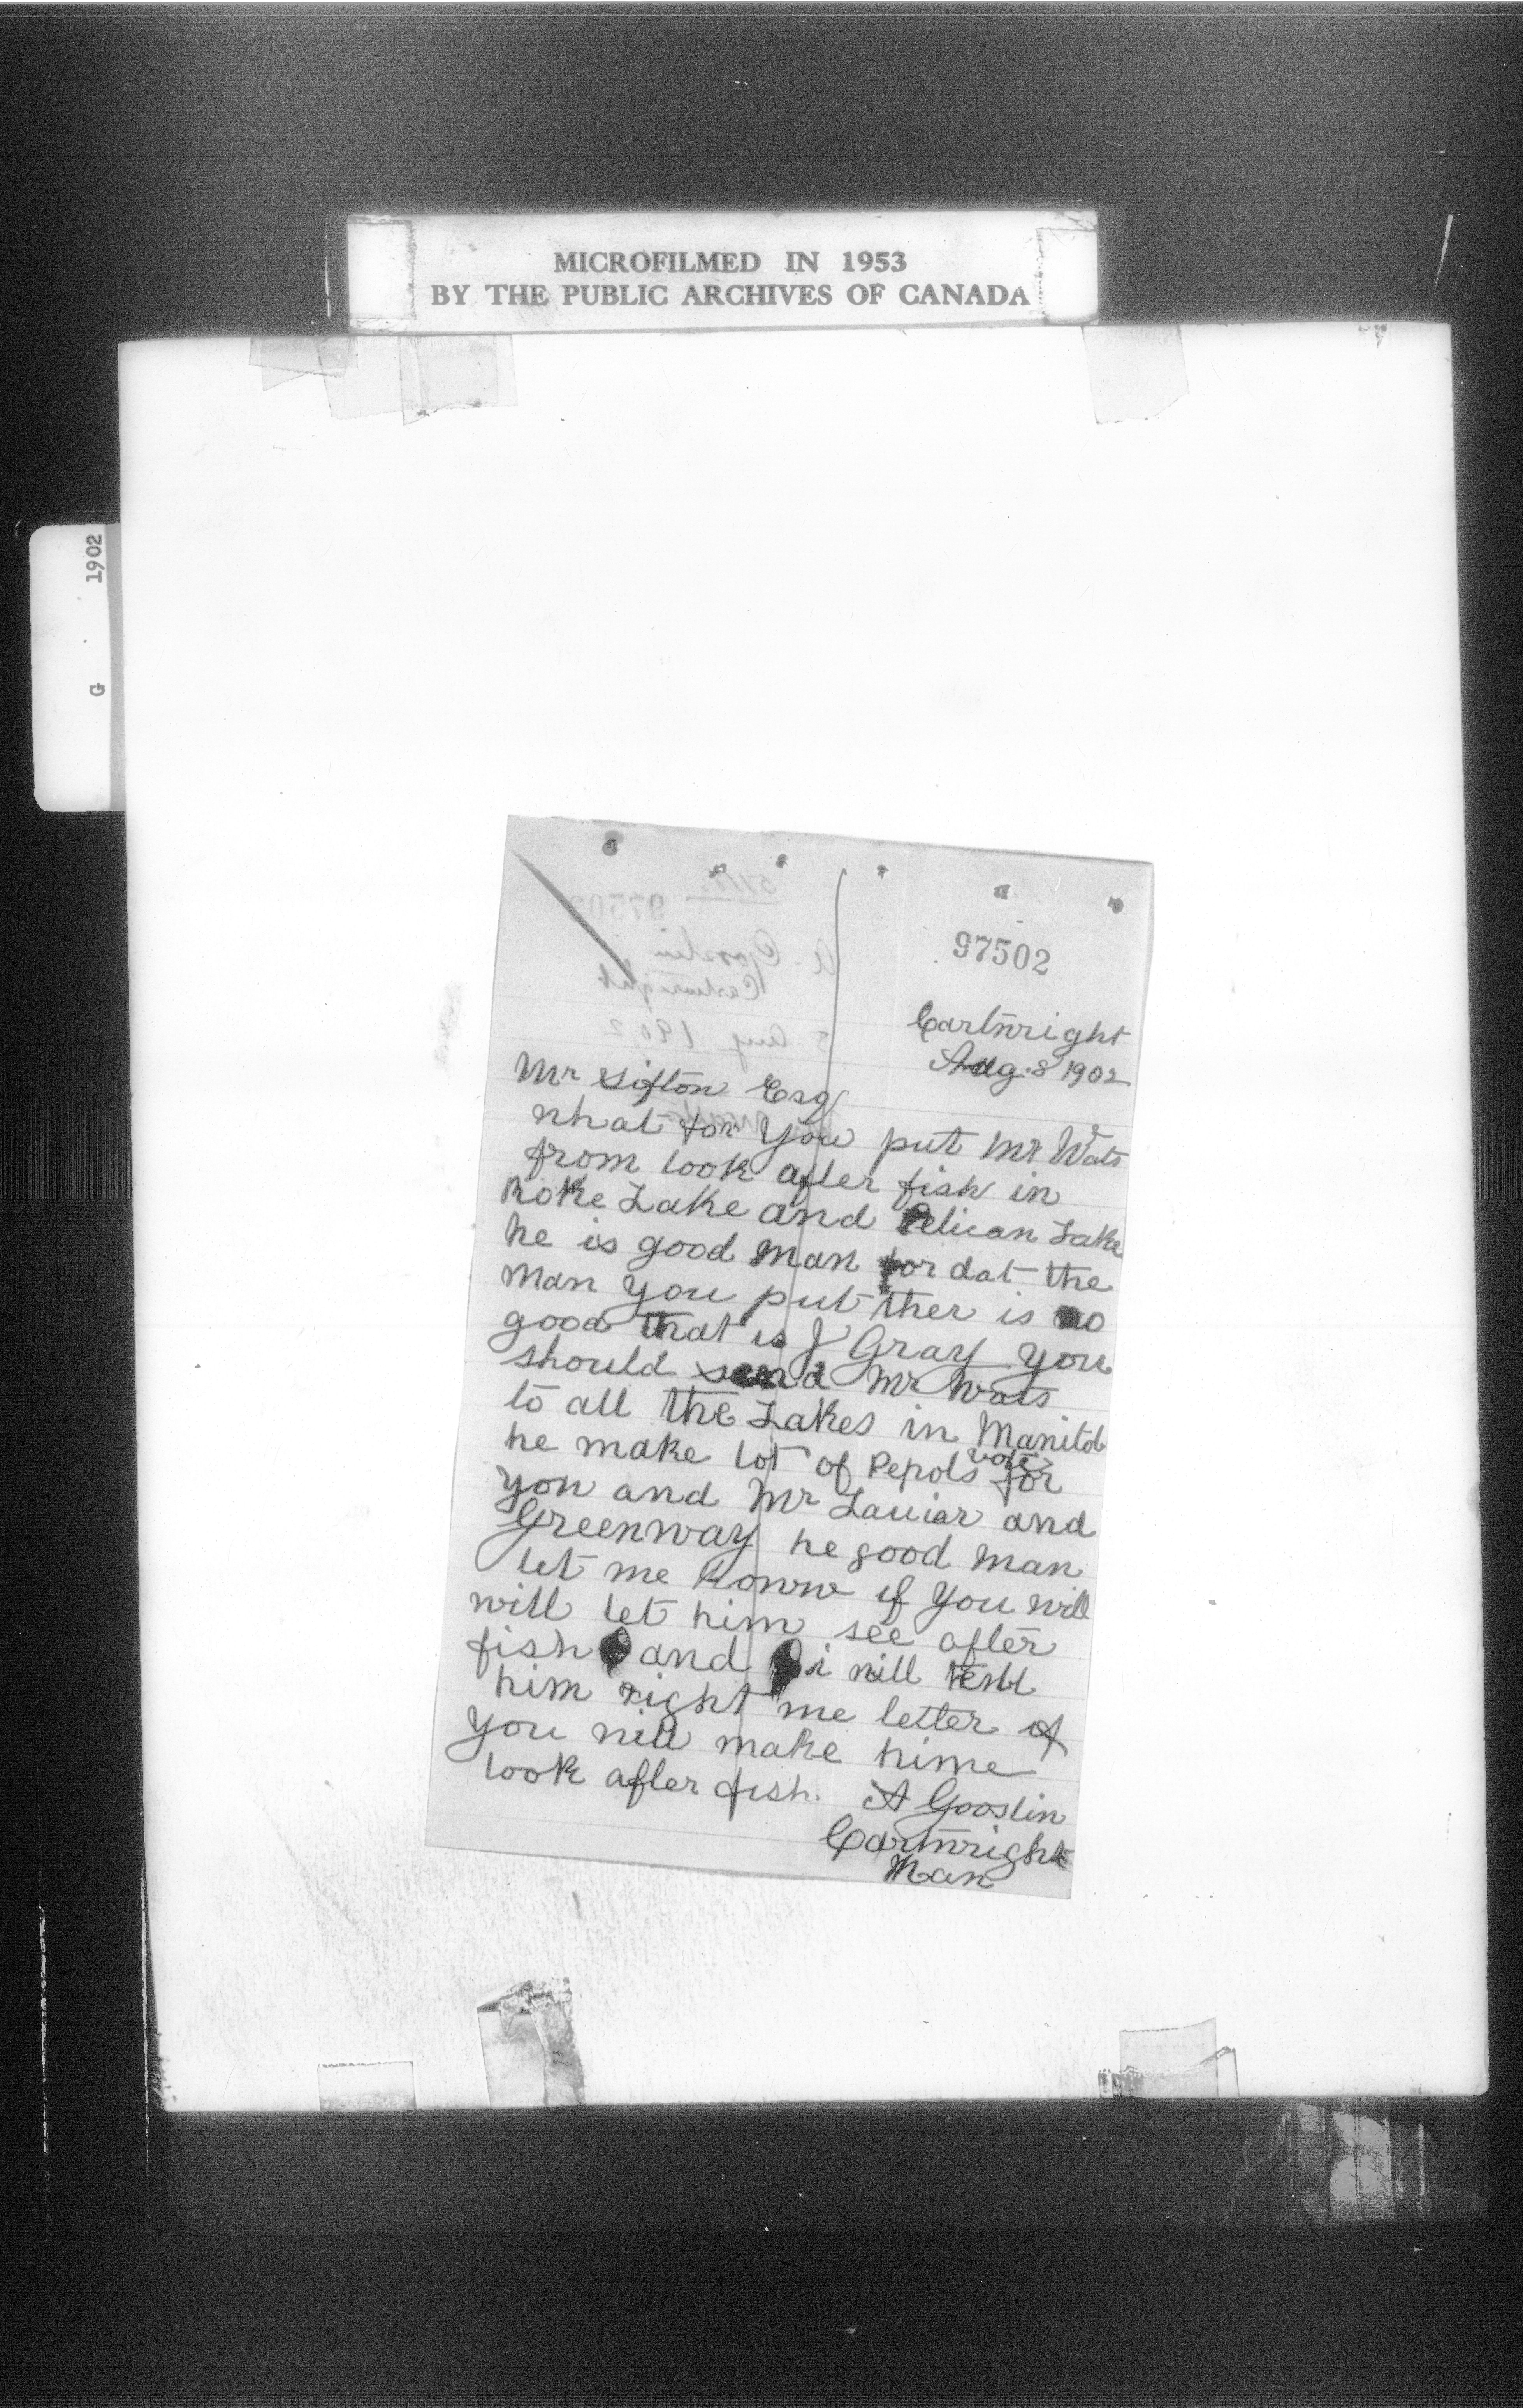 MICROFILMED IN 1953
BY THE PUBLIC ARCHIVES OF CANADA
G 1902
97502
Cartwright
Aug. 8 1902
Mr Sifton Esq
what for you put Mr Wats
from look after fish in
Roke Lake and Pelican Lake
he is good man for dat the
man you put ther is no
good that is J Gray you
should send Mr Wats
to all the Lakes in Manitob
he make lot of Pepols vote for
you and Mr Lauiar and
Greenway he good man
let me Konw if you will
will let him see after
fish and i will tell
him right me letter if
you will make hime
look after fish. A Gooslin
Cartwright
Man